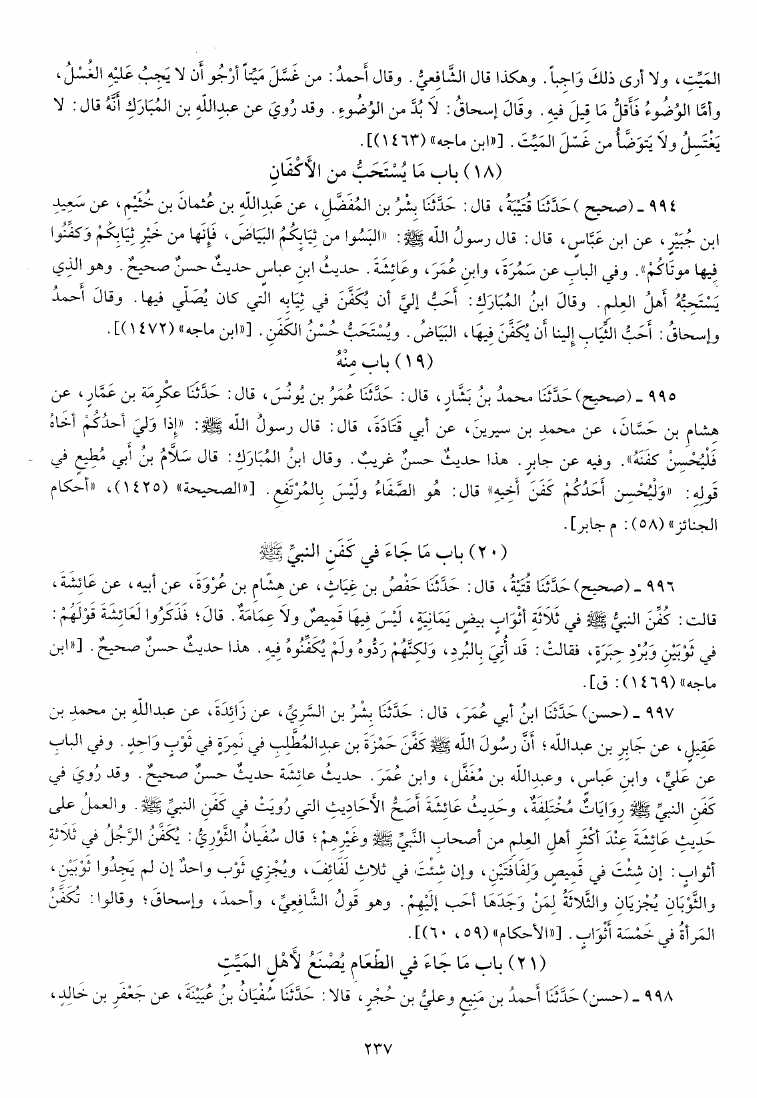 المَيِّتِ، ولا أرى ذلكَ وَاجِباً. وهكذا قال الشَّافِعيُّ. وقال أَحمدُ: من غَسَّلَ مَيِّتاً أرْجُو أَن لا يَجِبُ عَلَيْهِ الغُسْلُ،
وأمَّا الوُضُوءُ فَأَقلُّ مَا قِيلَ فيهِ. وقَالَ إسحاقُ: لاَ بُدَّ من الوُضُوءِ. وقد رُويَ عن عبدِاللَّهِ بن المُبَارَكِ أنَّهُ قال: لا
يَغْتَسِلُ ولاَ يَتوَضَّأُ من غَسّلَ المَيِّتَ. [«ابن ماجه» (١٤٦٣)].
(١٨) باب مَا يُسْتَحَبُّ من الأَكْفَانِ
٩٩٤ ـ (صحيح) حَدَّثَنَا قُتَيْبَةُ، قال: حَدَّثَنَا بِشْرُ بن المُفَضَّلِ، عن عَبدِاللَّهِ بن عُثمانَ بن خُثَيْمٍ، عن سَعِيدِ
ابن جُبَيْرٍ، عن ابن عَبَّاسٍ، قال: قال رسولُ اللَّه ﷺ: «البَسُوا من ثِيَابِكُمُ البَيَاضَ، فَإِنَها من خَيْرِ ثِيَابِكُمْ وَكَفِّنُوا
فِيها موتَاكُمْ». وفي البابِ عن سَمُرَةَ، وابنِ عُمَرَ، وعَائِشَةَ. حديثُ ابن عباسٍ حديثٌ حسنٌ صحيحٌ. وهو الذِي
يَسْتَحِبُّهُ أَهلُ العِلمِ. وقالَ ابنُ المُبَارَكِ: أَحَبُّ إليَّ أن يُكَفَّنَ في ثِيَابِه التي كان يُصَلّي فيها. وقالَ أحمدُ
وإسحاقُ: أَحَبُّ الثِّيَابِ إلينا أن يُكَفَّنَ فِيهَا، البَيَاضُ. ويُسْتَحَبُّ حُسْنُ الكَفَنِ. [«ابن ماجه» (١٤٧٢)].
(١٩) باب مِنْهُ
٩٩٥ ـ (صحيح) حَدَّثَنَا محمدُ بنُ بَشَّارٍ، قال: حَدَّثَنَا عُمَرُ بن يُونُسَ، قال: حَدَّثَنَا عِكْرِمَة بن عَمَّارٍ، عن
هِشامِ بن حَسَّانَ، عن محمدِ بن سيرينَ، عن أبي قَتَادَةَ، قال: قال رسولُ اللَّه ﷺ: «إذَا وَليَ أحدُكُمْ أخَاهُ
فَلْيُحْسِنْ كَفنَهُ». وفيه عن جابرٍ. هذا حديثٌ حسنٌ غريبٌ. وقال ابنُ المُبَارَكِ: قال سَلاَّمُ بنُ أبي مُطِيعٍ في
قَولِهِ: «وَلْيُحْسِن أَحَدُكُمْ كَفَنَ أَخِيهِ» قال: هُو الصَّفَاءُ ولَيْسَ بِالمُرْتَفِعِ. [«الصحيحة» (١٤٢٥)، «أحكام
الجنائز» (٥٨): م جابر].
(٢٠) باب مَا جَاءَ في كَفَنِ النبيِّ ﷺ
٩٩٦ ـ (صحيح) حَدَّثَنَا قُتَيْبَةُ، قال: حَدَّثَنَا حَفْصُ بن غِيَاثٍ، عن هِشَامِ بن عُرْوَةَ، عن أبيه، عن عَائِشَةَ،
قالت: كُفِّنَ النبيُّ ﷺ في ثَلاَثَةِ أثْوَابٍ بيضٍ يَمَانِيَةٍ، لَيْسَ فِيهَا قَمِيصٌ ولاَ عِمَامَةٌ. قالَ؛ فَذَكَرُوا لَعَائِشَةَ قَوْلَهُمْ:
في ثَوْبَيْنِ وَبُرْدِ حِبَرَةٍ، فقالتْ: قَد أُتِيَ بِالبُردِ، وَلكِنَّهُمْ رَدُّوهُ ولَمْ يُكَفِّنُوهُ فِيهِ. هذا حديثٌ حسنٌ صحيحٌ. [«ابن
ماجه» (١٤٦٩): ق].
٩٩٧ ـ (حسن) حَدَّثَنَا ابنُ أبي عُمَرَ، قال: حَدَّثَنَا بِشْرُ بن السَّرِيِّ، عن زَائِدَةَ، عن عبداللَّهِ بن محمدِ بن
عَقِيلٍ، عن جَابِرِ بن عبداللَّه؛ أنَّ رسُولَ اللَّه ﷺ كَفَّنَ حَمْزَةَ بن عبدِالمُطَّلِبِ في نَمِرَةٍ في ثَوْبٍ وَاحِدٍ. وفي البابِ
عن عَليٍّ، وابنِ عباسٍ، وعبدِاللَّه بن مُغَفَّلٍ، وابن عُمَرَ. حديثُ عائِشَة حديثٌ حسنٌ صحيحٌ. وقد رُويَ في
كَفَنِ النبيِّ ﷺ رِوَايَاتٌ مُخْتَلفَةٌ، وحَدِيثُ عَائِشَةَ أَصَحُّ الأحَادِيثِ التي رُويَتْ في كَفَنِ النبيِّ ﷺ. والعملُ على
حَدِيثِ عَائِشَةَ عِنْدَ أكْثَرِ أهلِ العِلمِ من أصحابِ النَّبيِّ ﷺ وغَيْرِهِمْ؛ قال سُفيَانُ الثَّوْرِيُّ: يُكَفَّنُ الرَّجُلُ في ثَلاَثَةِ
أثوابٍ: إن شِئْتَ في قَميصٍ وَلِفَافَتَيْنِ، وإن شِئْتَ في ثلاثِ لَفَائِفَ، ويُجْزِي ثَوْب واحدٌ إن لم يَجِدُوا ثَوْبَيْنِ،
والثَّوْبَانِ يُجْزِيَانِ والثَّلاَثَةُ لِمَنْ وَجَدَهَا أحَب إلَيْهِمْ. وهو قَولُ الشَّافِعِيِّ، وأحمدَ، وإسحاقَ؛ وقالوا: تُكَفَّنُ
المَرأةُ في خَمْسَة أثْوَابٍ. [«الأحكام» (٥٩، ٦٠)].
(٢١) باب مَا جَاءَ في الطّعَامِ يُصْنَعُ لأَهْلِ المَيِّتِ
٩٩٨ ـ (حسن) حَدَّثَنَا أحمدُ بن مَنِيعٍ وعليُّ بن حُجْرٍ، قالا: حَدَّثَنَا سُفْيَانُ بنُ عُيَيْنَةَ، عن جَعْفَرِ بن خَالِدٍ،
٢٣٧